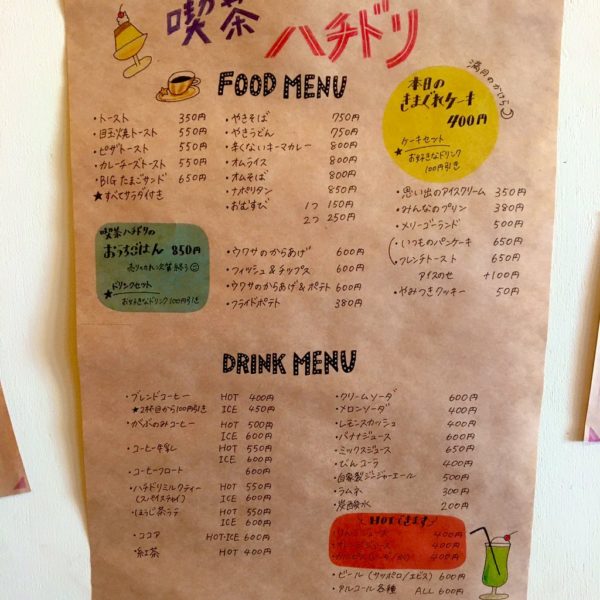 喫茶 ハチドリ
FOOD MENU
・トースト 350円
・目玉焼トースト 550円
・ピザトースト 550円
・カレーチーズトースト 550円
・BIG たまごサンド 650円
★すべてサラダ付き
・やきそば 750円
・やきうどん 750円
・辛くないキーマカレー 800円
・オムライス 800円
・オムそば 800円
・ナポリタン 850円
・おむすび 1つ 150円
2つ 250円
満月のかけら
本日の
きまぐれケーキ
400円
ケーキセット
★お好きなドリンク
100円引き
喫茶ハチドリの
おうちごはん 850円
売りきれ次第終了
ドリンクセット
★お好きなドリンク100円引き
・ウワサのからあげ 600円
・フィッシュ&チップス 600円
・ウワサのからあげ&ポテト 600円
・フライドポテト 380円
・思い出のアイスクリーム 350円
・みんなのプリン 380円
・メリーゴーランド 500円
・いつものパンケーキ 650円
・フレンチトースト 650円
アイスのせ +100円
・やみつきクッキー 50円
DRINK MENU
・ブレンドコーヒー HOT 400円
★2杯目から100円引き ICE 450円
・がぶのみコーヒー HOT 500円
ICE 600円
・コーヒー牛乳 HOT 550円
ICE 600円
・コーヒーフロート 600円
・ハチドリミルクティー HOT 550円
(スパイスチャイ) ICE 600円
・ほうじ茶ラテ HOT 550円
ICE 600円
・ココア HOT・ICE 600円
・紅茶 HOT 400円
・クリームソーダ 600円
・メロンソーダ 400円
・レモンスカッシュ 400円
・バナナジュース 600円
・ミックスジュース 650円
・びんコーラ 400円
・自家製ジンジャーエール 500円
・ラムネ 300円
・炭酸水 200円
HOTできます
400円
400円
400円
・ビール(サッポロ/エビス) 600円
・アルコール各種 ALL 600円